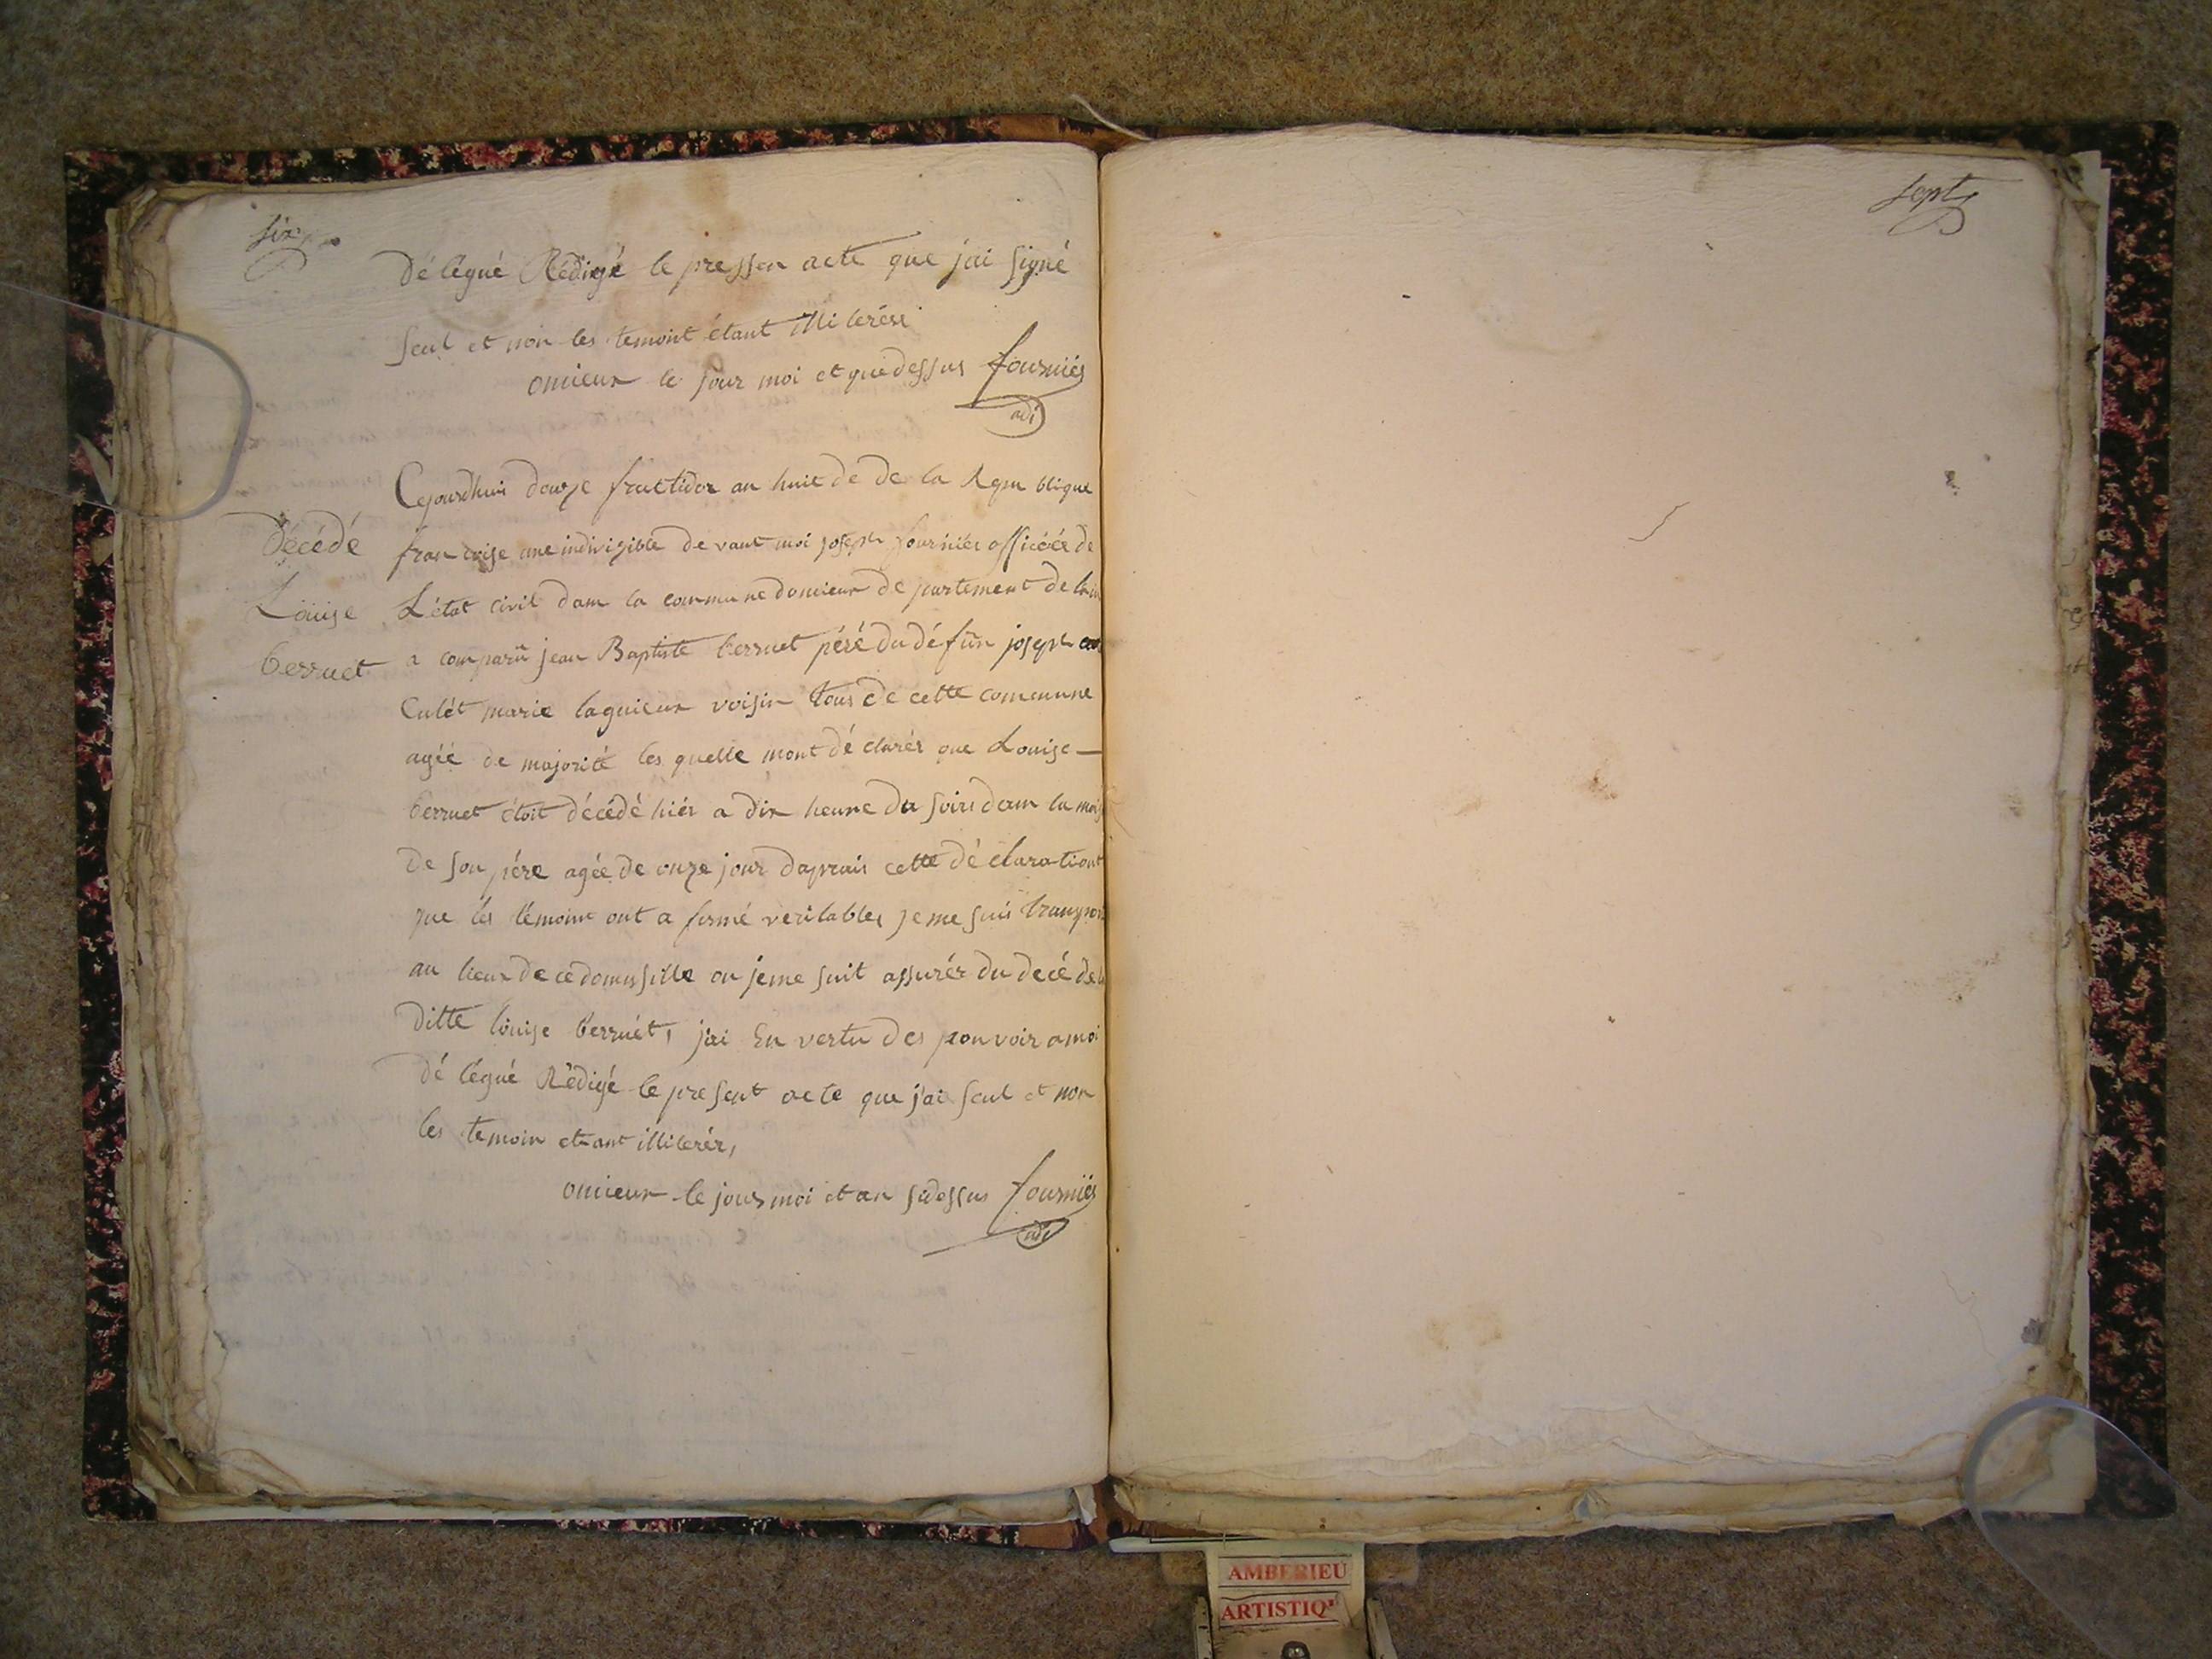 six
dé légué Rédigé le pressen acte que j'ai signé
seul et non les temoint étant illiterési
omieux le jour moi et que dessus fournier
adj
Cejourdhui douze fructidor an huit de de la Repu blique
fran coise une indivisible de vant moi joseph fournier officiér de
L'état civil dam la commune domieux de partement de lain
a comparu jean Baptiste berruet péré du défun joseph
Culét marie laguieux voisin tous de cette commune
agéé de majorité les quelle mont dé clarér que Louise
berruet étoit décédé hiér a dix heure du soire dam la mais
de son pére agée de onze jour daprais cette dé clarationt
que les témoins ont a firmé veritables je me suis transpor
au lieux de ce domissille ou je me suit assurér du decé de la
ditte louise berruét, j'ai En vertu des pouvoir a moi
dé légué Rédigé le present acte que j'ai seul et non
les temoin etant illiterér,
omieux le jour moi et an sidessus fournier
adj
décédé
Louise
berruet
sept
AMBERIEU
ARTISTIQ'